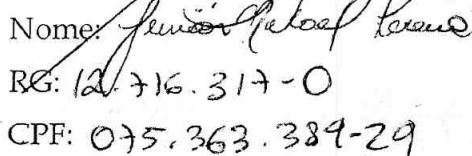 Nome:
RG: 12.716.317-0
CPF: 075.363.389-29